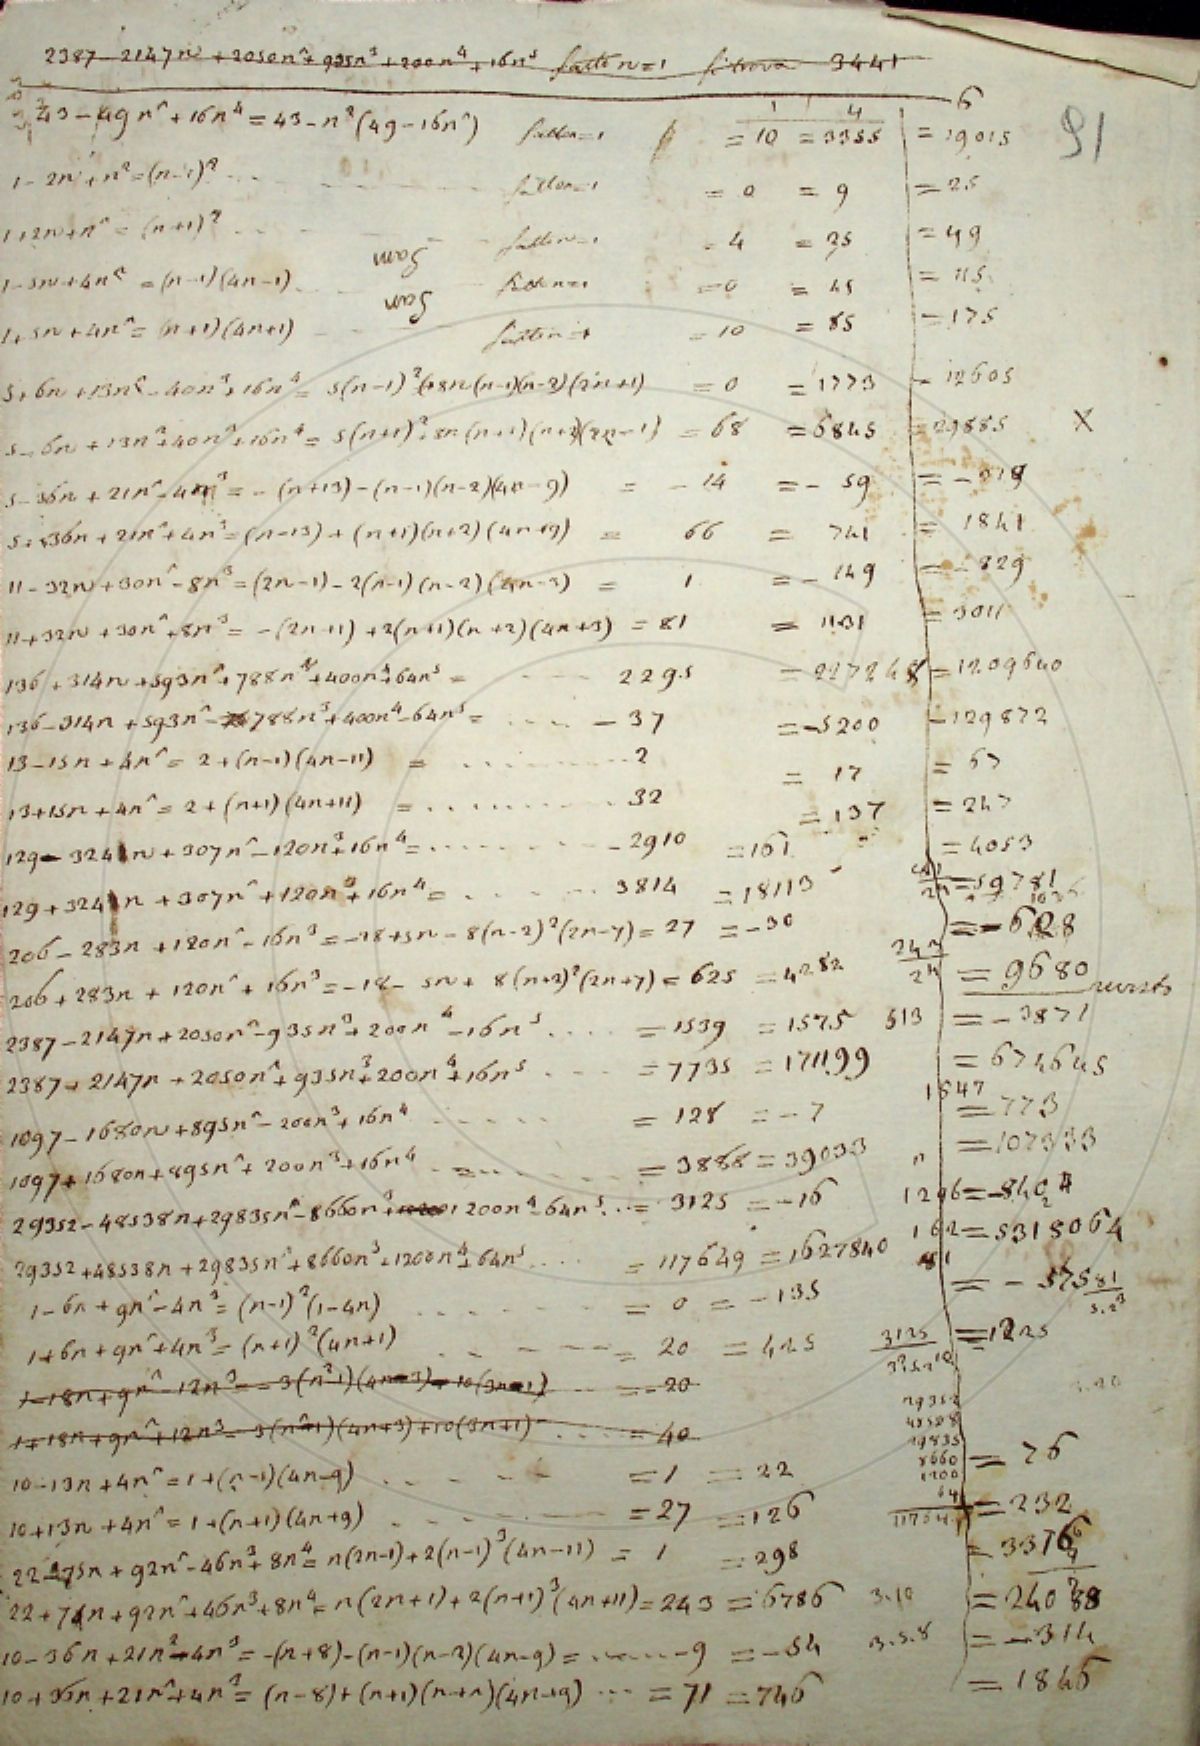 2387 - 2147n + 2050n² + 935n³ + 200n⁴ + 16n⁵ fatto n=1 si trova 3441
1 4 6
43 - 49n² + 16n⁴ = 43 - n²(49 - 16n²) fatto n=1 = 10 = 3355 = 19015 91
1 - 2n + n² = (n-1)² fatto n=1 = 0 = 9 = 25
1 + 2n + n² = (n+1)² fatto n=1 = 4 = 25 = 49
1 - 5n + 4n² = (n-1)(4n-1) fatto n=1 = 0 = 45 = 115
1 + 5n + 4n² = (n+1)(4n+1) fatto n=1 = 10 = 85 = 175
5 + 6n + 13n² - 40n³ + 16n⁴ = 5(n-1)² + 8n(n-1)(n-2)(2n+1) = 0 = 1773 = 12605
5 - 6n + 13n² + 40n³ + 16n⁴ = 5(n+1)² + 8n(n+1)(n+2)(2n-1) = 68 = 6845 = 29885 X
5 - 36n + 21n² - 4n³ = -(n+13) - (n-1)(n-2)(4n-9) = - 14 = - 59 = - 319
5 + 36n + 21n² + 4n³ = (n-13) + (n+1)(n+2)(4n+9) = 66 = 741 = 1841
11 - 32n + 30n² - 8n³ = (2n-1) - 2(n-1)(n-2)(4n-3) = 1 = - 149 = - 829
11 + 32n + 30n² + 8n³ = -(2n-11) + 2(n+1)(n+2)(4n+3) = 81 = 1131 = 3011
136 + 314n + 593n² + 788n³ + 400n⁴ + 64n⁵ = 2295 = 227248 = 1209640
136 - 314n + 593n² - 788n³ + 400n⁴ - 64n⁵ = - 37 = - 5200 - 129872
13 - 15n + 4n² = 2 + (n-1)(4n-11) = 2 = 17 = 67
13 + 15n + 4n² = 2 + (n+1)(4n+11) = 32 = 137 = 247
129 - 3241n + 307n² - 120n³ + 16n⁴ = - 2910 = 161 = 4053
129 + 3241n + 307n² + 120n³ + 16n⁴ = 3814 = 18113 = 59781
206 - 283n + 120n² - 16n³ = -18 + 5n - 8(n-2)²(2n-7) = 27 = - 30 = - 628
206 + 283n + 120n² + 16n³ = -18 - 5n + 8(n+2)²(2n+7) = 625 = 4282 243 = 9680
2387 - 2147n + 2050n² - 935n³ + 200n⁴ - 16n⁵ = 1539 = 1575 513 = - 3871
2387 + 2147n + 2050n² + 935n³ + 200n⁴ + 16n⁵ = 7735 = 171199 = 674645
1097 - 1680n + 895n² - 200n³ + 16n⁴ = 128 = - 7 1547 = 773
1097 + 1680n + 895n² + 200n³ + 16n⁴ = 3888 = 39033 = 107333
29352 - 48538n + 29835n² - 8660n³ + 1200n⁴ - 64n⁵ = 3125 = - 16 1296 = - 840
29352 + 48538n + 29835n² + 8660n³ + 1200n⁴ + 64n⁵ = 117649 = 1627840 162 = 5315064
81
1 - 6n + 9n² - 4n³ = (n-1)²(1-4n) = 0 = - 135 = - 575
1 + 6n + 9n² + 4n³ = (n+1)²(4n+1) = 20 = 425 3125 = 1225
1 - 18n + 9n² - 12n³ = - 3(n²+1)(4n-3) + 10(3n-1) = - 20
1 + 18n + 9n² + 12n³ = 3(n²+1)(4n+3) + 10(3n+1) = 40
29352
48538
29835
8660
1200
64
10 - 13n + 4n² = 1 + (n-1)(4n-9) = 1 = 22 = 76
10 + 13n + 4n² = 1 + (n+1)(4n+9) = 27 = 126 = 232
22 - 75n + 92n² - 46n³ + 8n⁴ = n(2n-1) + 2(n-1)³(4n-11) = 1 = 298 = 3376
22 + 75n + 92n² + 46n³ + 8n⁴ = n(2n+1) + 2(n+1)³(4n+11) = 243 = 6786 3.10 = 24088
10 - 36n + 21n² - 4n³ = -(n+8) - (n-1)(n-2)(4n-9) = - 9 = - 54 3.5.8 = - 314
10 + 36n + 21n² + 4n³ = (n-8) + (n+1)(n+2)(4n+9) = 71 = 746 = 1846